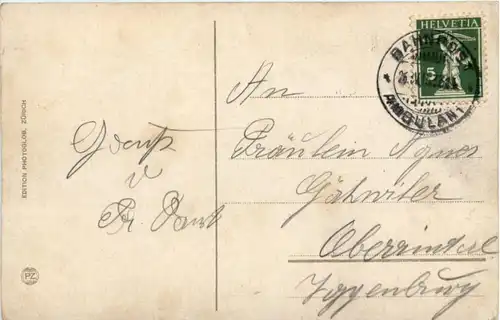 HELVETIA
5
BAHNPOST
AMBULANT
An
Fräulein Agnes
Gähwiler
Oberrindal
Toggenburg
Gruß
v
Fr.
EDITION PHOTOGLOB, ZÜRICH
PZ